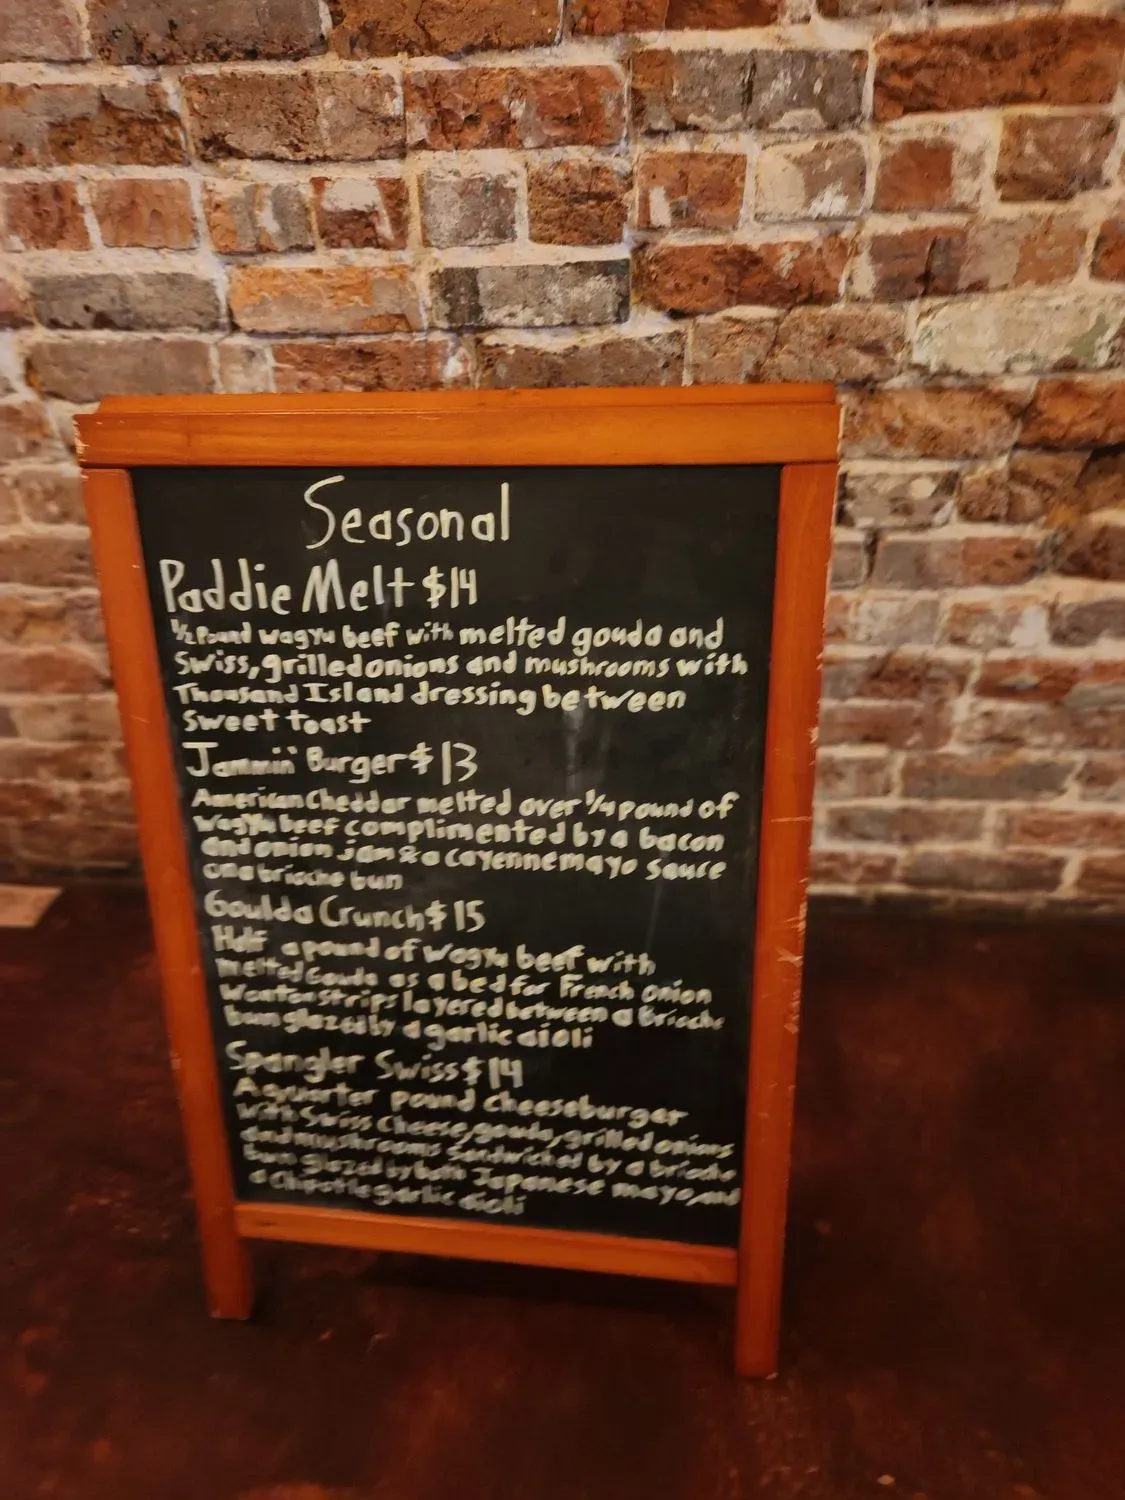 Seasonal
Paddie Melt $14
1/2 Pound wagyu beef with melted gouda and
Swiss, grilled onions and mushrooms with
Thousand Island dressing between
Sweet toast
Jammin' Burger $13
American Cheddar melted over 1/4 pound of
Wagyu beef complimented by a bacon
and onion jam & a cayenne mayo sauce
on a brioche bun
Goulda Crunch $15
Half a pound of Wagyu beef with
melted Gouda as a bed for French onion
Wonton strips layered between a Brioche
bun glazed by a garlic aioli
Spangler Swiss $14
A quarter pound Cheeseburger
With Swiss Cheese, gouda, grilled onions
and mushrooms Sandwiched by a brioche
bun glazed by both Japanese mayo, and
a Chipotle garlic aioli